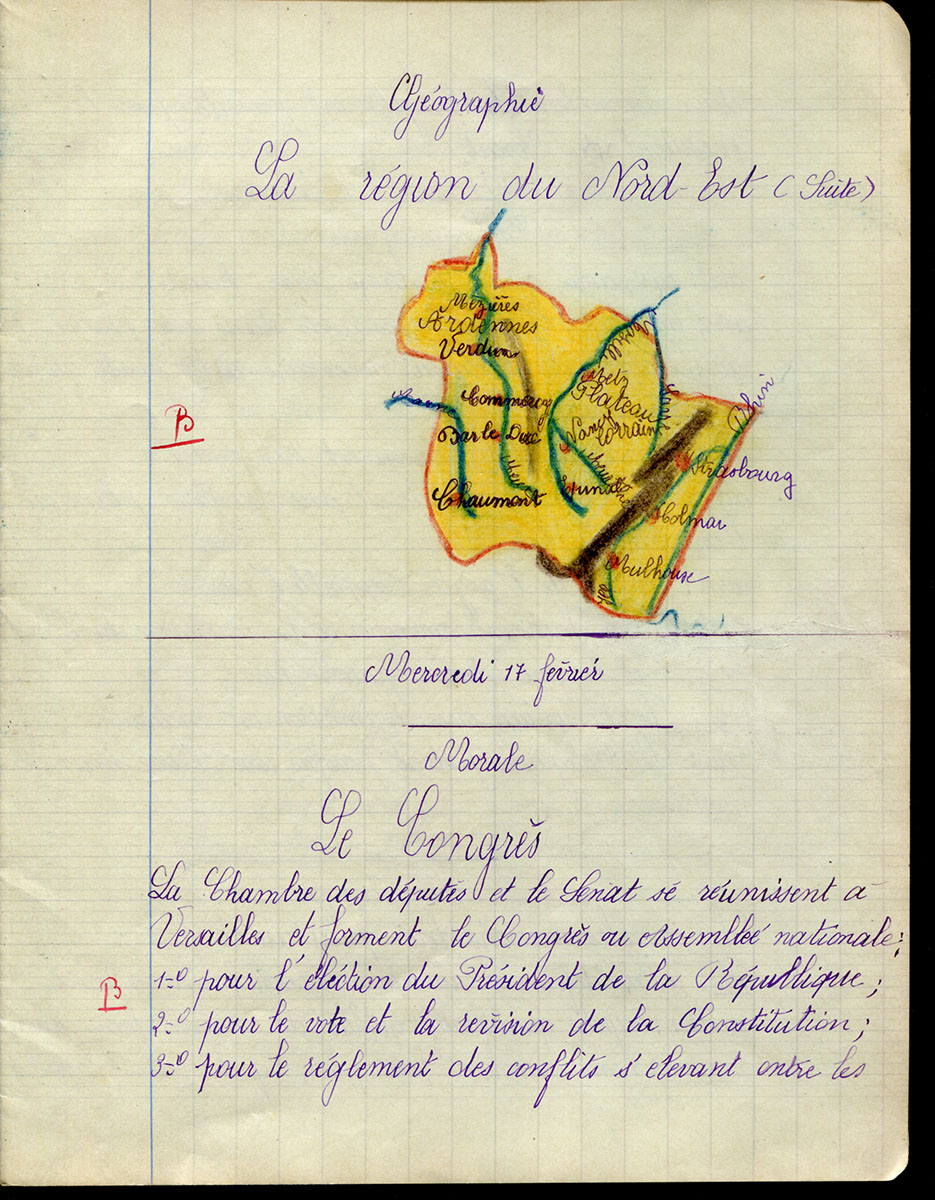 Géographie
La région du Nord-Est (Suite)
Mézières
Ardennes
Verdun
Metz
Commercy
Plateau
lorrain
Nancy
Rhin
B
Bar le Duc
Strasbourg
Chaumont
Colmar
Mulhouse
Mercredi 17 février
Morale
Le Congrès
La Chambre des députés et le Sénat se réunissent à
Versailles et forment le Congrès ou Assemblée nationale:
B
1º pour l'éléction du Président de la République;
2º pour le vote et la revision de la Constitution;
3º pour le réglement des conflits s'élevant entre les